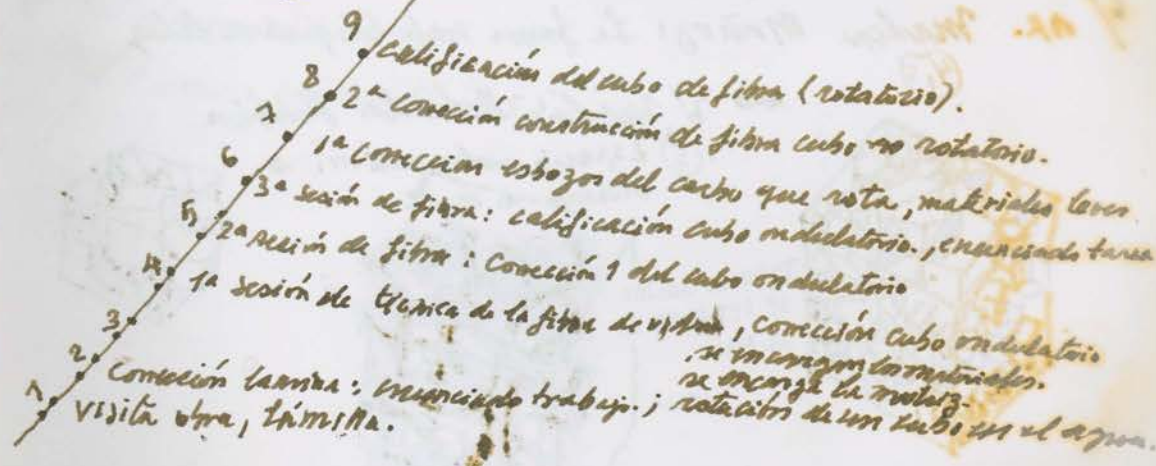 9
calificación del cubo de fibra (rotatorio).
8
2ª Corrección construcción de fibra cubo no rotatorio.
7
1ª Corrección esbozos del cubo que rota, materiales leves
6
3ª sesión de fibra: calificación cubo ondulatorio., enunciado tarea
5
2ª sesión de fibra: Corrección 1 del cubo ondulatorio
4
1ª sesión de técnica de la fibra de vidrio, corrección cubo ondulatorio
se encargan los materiales.
3
se encarga la matriz.
2
Corrección lámina: enunciado trabajo.; rotación de un cubo en el agua.
1
visita obra, lámina.